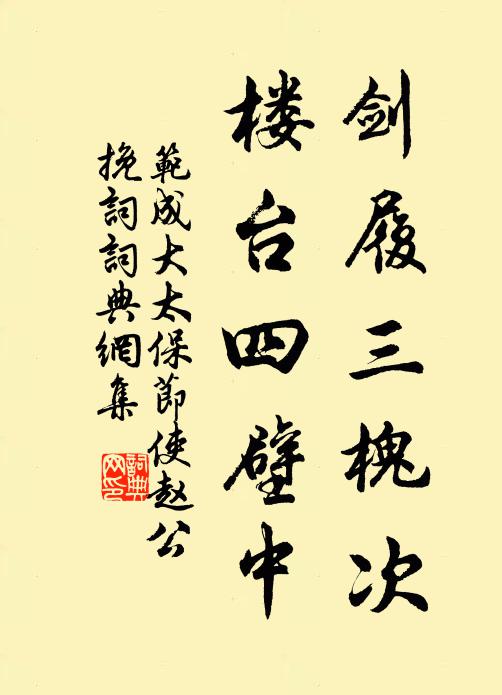 剑履三槐次
楼台四壁中
範成大太保節使赵公
挽詞詞典網集
詞典网印